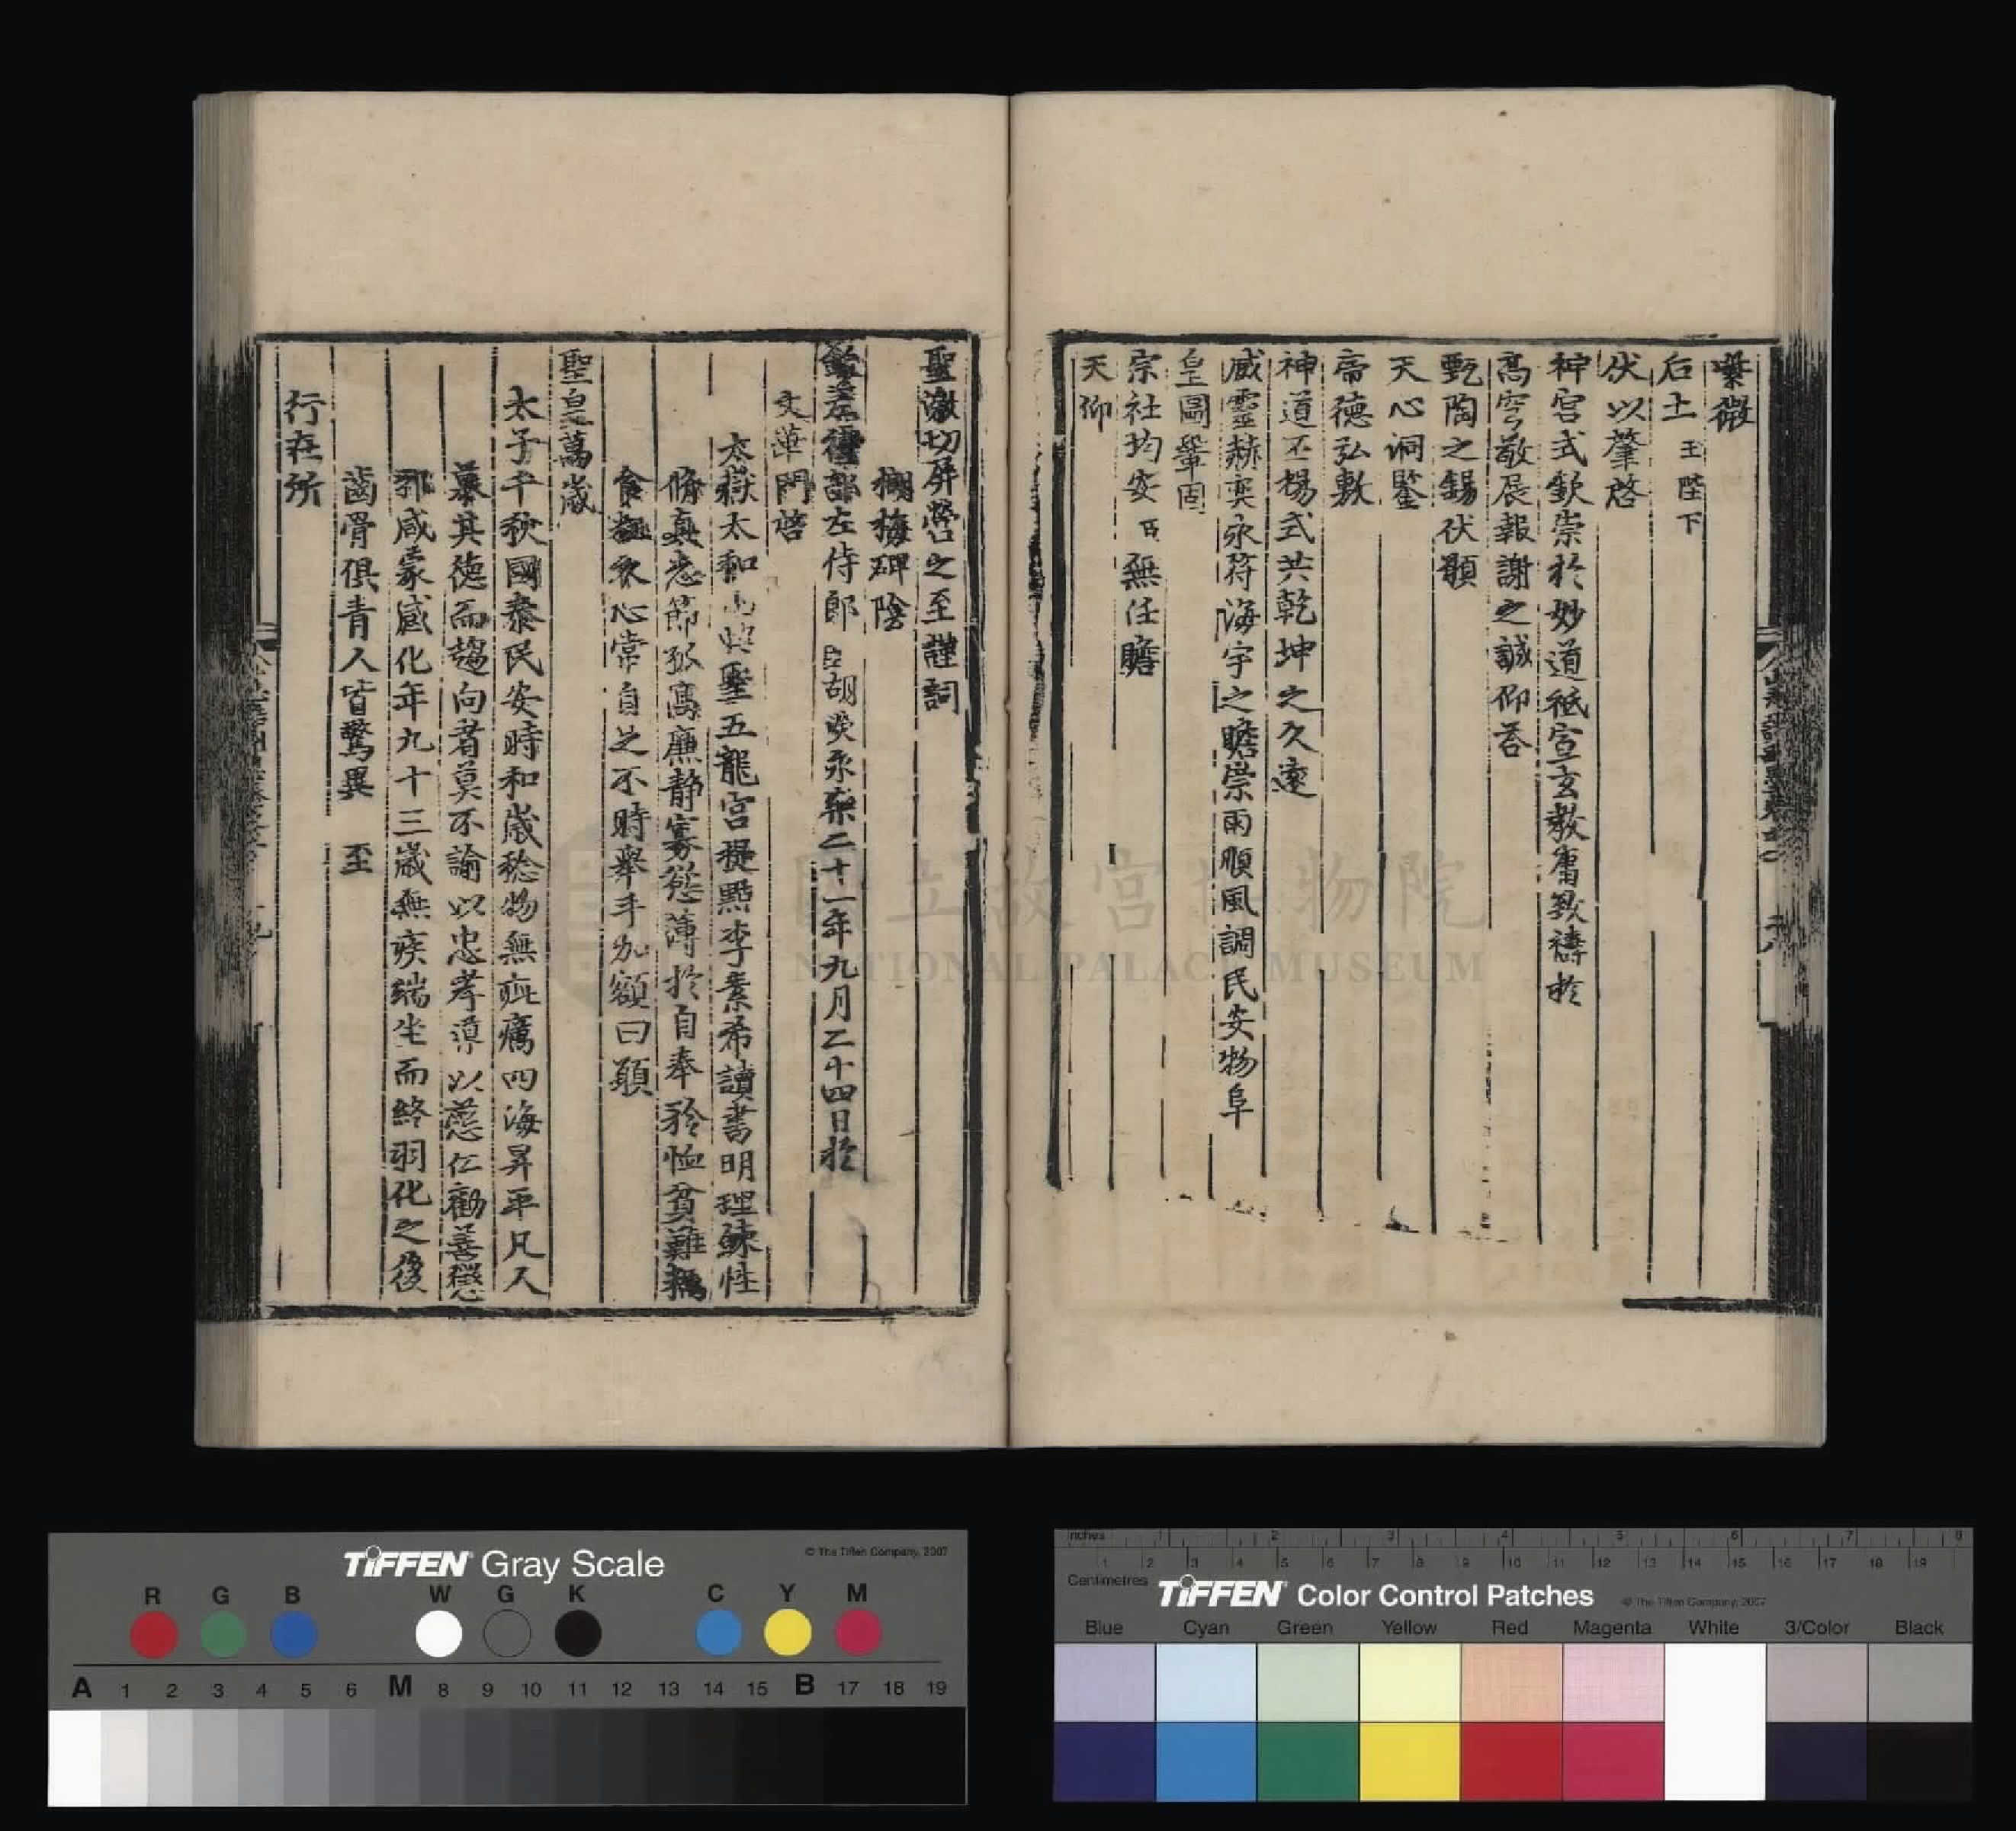 紫微
后土 玉陛下
伏以肇啓
神宮式欽崇於妙道祗宣玄教庸致禱於
高穹敬展報謝之誠仰荅
甄陶之錫伏願
天心洞鑒
帝德弘敷
神道丕揚式共乾坤之久遠
威靈赫奕永符海宇之瞻崇雨順風調民安物阜
皇圖鞏固
宗社均安臣無任瞻
天仰
聖激切屏營之至謹詞
榔梅碑陰
部左侍郎臣胡濙永樂二十一年九月二十四日於
文華門啓
太嶽太和山 聖五龍宮提點李素希讀書明理鍊性
脩真志節孤高廉靜寡慾薄於自奉矜恤貧難
食 衣心常自足不時舉手加額曰願
聖皇萬歲
太子千秋國泰民安時和歲稔物無疵癘四海昇平凡人
慕其德而趨向者莫不諭以忠孝導以慈仁勸善懲
邪咸蒙感化年九十三歲無疾端坐而終羽化之後
齒骨俱青人皆驚異 至
行在所
國立故宮博物院
NATIONAL PALACE MUSEUM
TIFFEN Gray Scale
© The Tiffen Company, 2007
R G B W G K C Y M
A 1 2 3 4 5 6 M 8 9 10 11 12 13 14 15 B 17 18 19
Inches 1 2 3 4 5 6 7 8
1 2 3 4 5 6 7 8 9 10 11 12 13 14 15 16 17 18 19
Centimetres
TIFFEN Color Control Patches
© The Tiffen Company, 2007
Blue Cyan Green Yellow Red Magenta White 3/Color Black